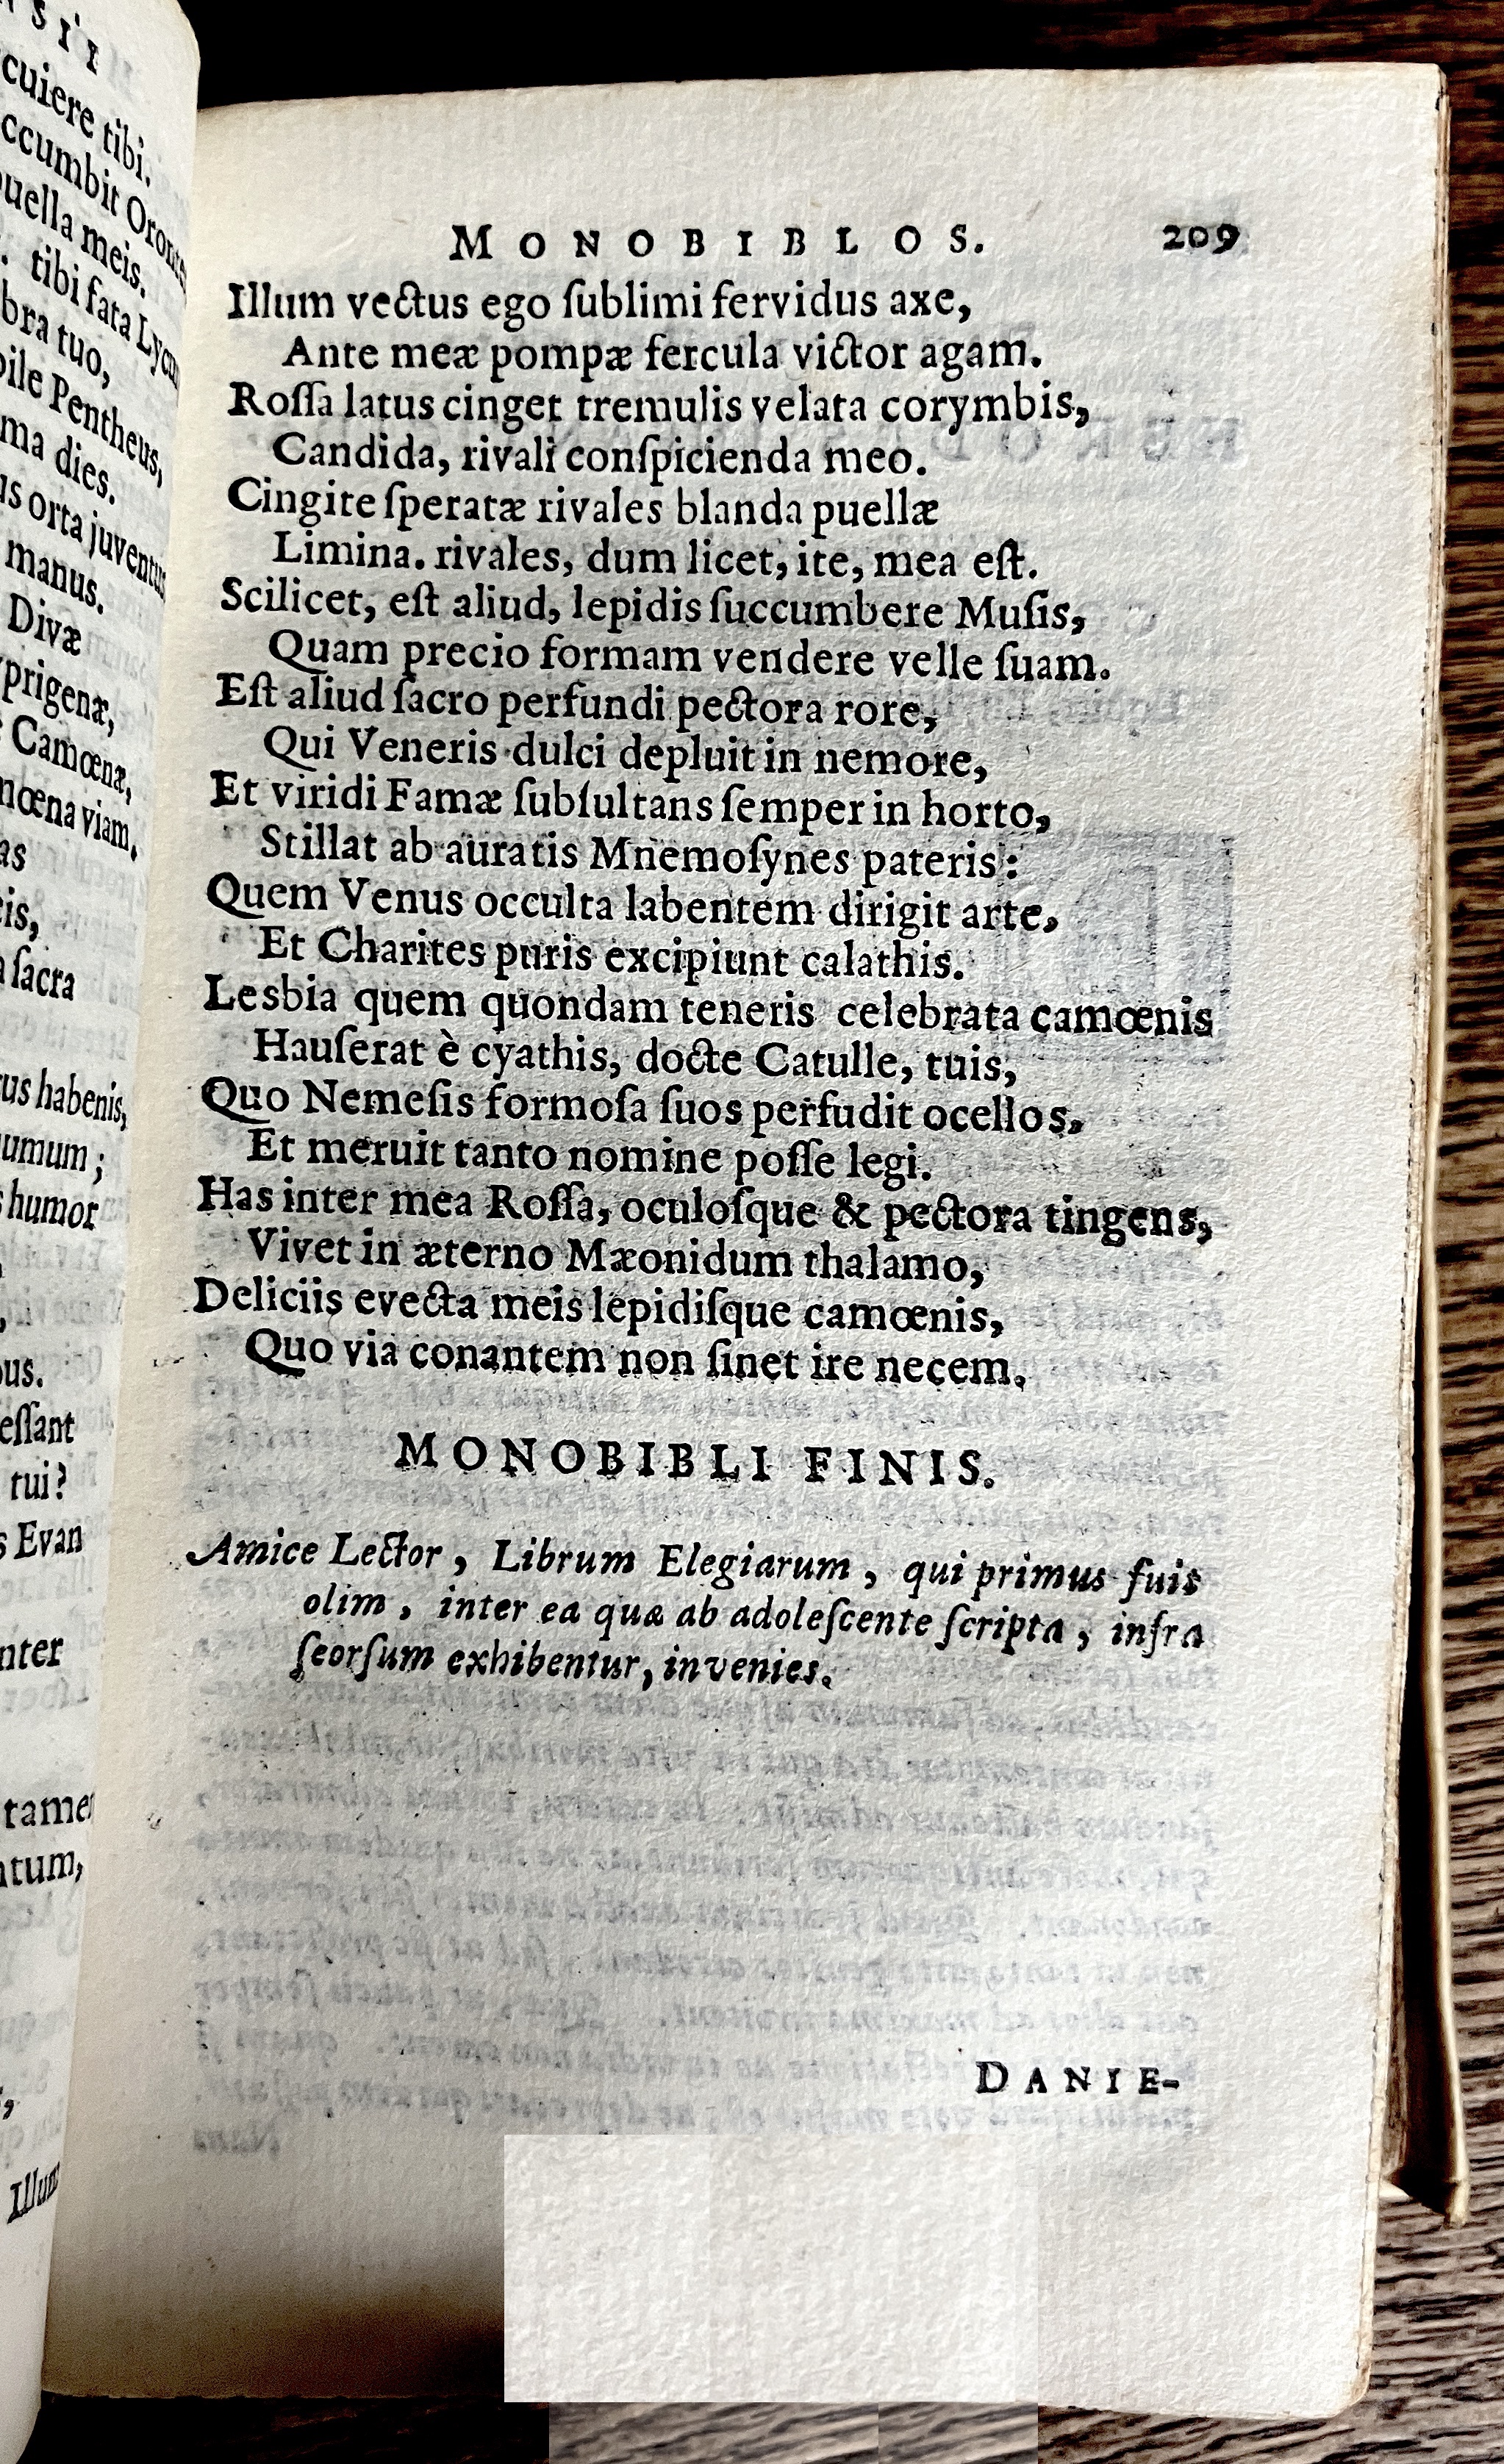 SII
cuiere tibi.
ccumbit Oronte
puella meis.
tibi fata Lycu
bra tuo,
bile Pentheus,
ma dies.
us orta juventus
manus.
Divæ
yprigenæ,
Camœnæ,
mœna viam.
as
cis,
ſacra
us habenis,
umum;
humor
bus.
eſſant
tui?
s Evan
nter
tamen
ntum,
Illum
MONOBIBLOS. 209
Illum vectus ego ſublimi fervidus axe,
Ante meæ pompæ fercula victor agam.
Roſſa latus cinget tremulis velata corymbis,
Candida, rivali conſpicienda meo.
Cingite ſperatæ rivales blanda puellæ
Limina. rivales, dum licet, ite, mea eſt.
Scilicet, eſt aliud, lepidis ſuccumbere Muſis,
Quam precio formam vendere velle ſuam.
Eſt aliud ſacro perfundi pectora rore,
Qui Veneris dulci depluit in nemore,
Et viridi Famæ ſubſultans ſemper in horto,
Stillat ab auratis Mnemoſynes pateris:
Quem Venus occulta labentem dirigit arte,
Et Charites puris excipiunt calathis.
Lesbia quem quondam teneris celebrata camœnis
Hauſerat è cyathis, docte Catulle, tuis,
Quo Nemeſis formoſa ſuos perfudit ocellos,
Et meruit tanto nomine poſſe legi.
Has inter mea Roſſa, oculoſque & pectora tingens,
Vivet in æterno Mæonidum thalamo,
Deliciis evecta meis lepidiſque camœnis,
Quo via conantem non ſinet ire necem.
MONOBIBLI FINIS.
Amice Lector, Librum Elegiarum, qui primus fuit
olim, inter ea quæ ab adoleſcente ſcripta, infra
ſeorſum exhibentur, invenies.
DANIE-